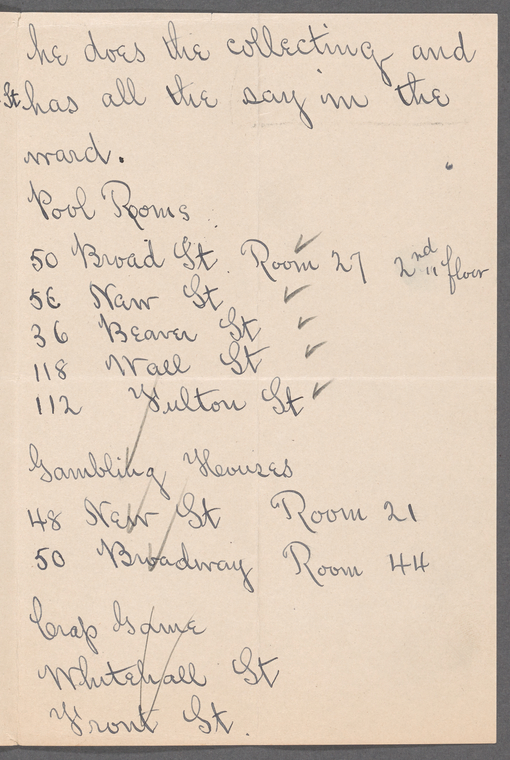 he does the collecting and
St has all the say in the
ward.
Pool Rooms
50 Broad St. Room 27 2nd " floor
56 New St
36 Beaver St
118 Wall St
112 Fulton St
Gambling Houses
48 New St Room 21
50 Broadway Room 44
Crap Game
Whitehall St
Front St.